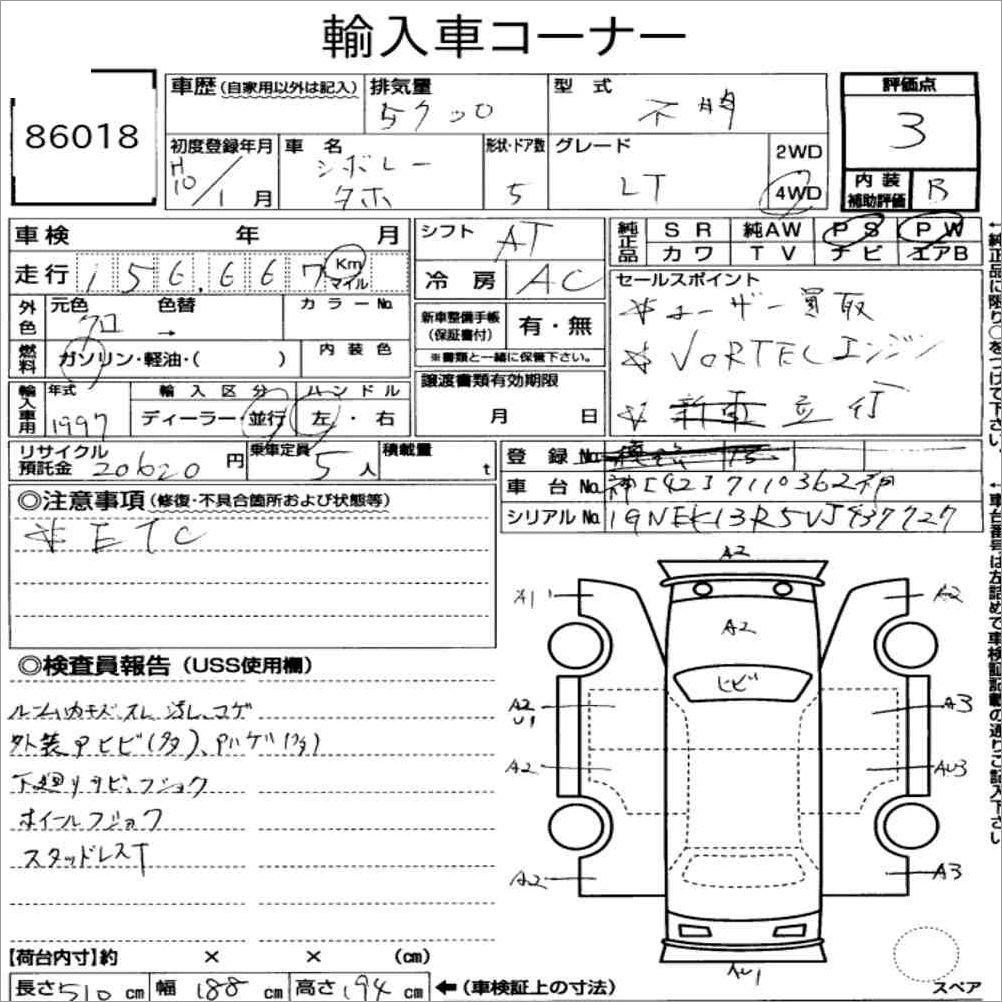 輸入車コーナー
86018
車歴(自家用以外は記入)
排気量
5700
型式
不明
評価点
3
初度登録年月
H10/1月
車名
シボレー
タホ
形状・ドア数
5
グレード
LT
2WD
4WD
内装
補助評価
B
車検 年 月
シフト
AT
純正品
SR 純AW PS PW
カワ TV ナビ エアB
走行
156,667
Km
マイル
冷房
AC
セールスポイント
外色
元色
クロ
色替
→
カラーNo.
新車整備手帳
(保証書付)
有・無
※書類と一緒に保管下さい。
*ユーザー買取
*VORTECエンジン
*新車並行
燃料
ガソリン・軽油・( )
内装色
譲渡書類有効期限
月 日
輸入車用
年式
1997
輸入区分
ディーラー・並行
ハンドル
左・右
リサイクル
預託金
20620円
乗車定員
5人
積載量
t
登録No.
車台No.
神[42]7110362神
シリアルNo.
1GNEK13R5VJ437727
←純正品に限り○をつけて下さい。
←車台番号は左詰めで車検証記載の通りご記入下さい
◎注意事項(修復・不具合箇所および状態等)
*ETC
◎検査員報告(USS使用欄)
ルーム内キズ、スレ、汚レ、コゲ
外装Pヒビ(多)、Pハゲ(多)
下廻りサビ、フショク
ホイールフショク
スタッドレスT
A2
A1
A2
A2
ヒビ
A2
U1
A3
A2
AU3
A2
A3
AU1
スペア
【荷台内寸】約 × × (cm)
長さ510cm
幅188cm
高さ194cm
←(車検証上の寸法)